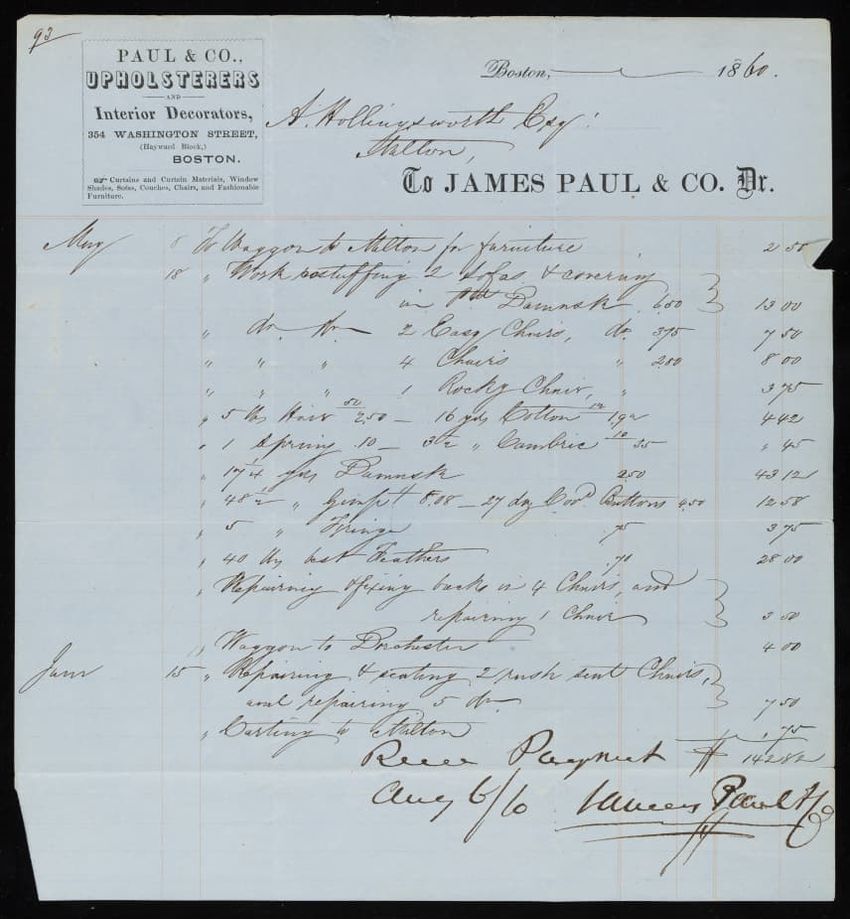 93
PAUL & CO.,
UPHOLSTERERS
AND
Interior Decorators,
354 WASHINGTON STREET,
(Hayward Block,)
BOSTON.
☞ Curtains and Curtain Materials, Window
Shades, Sofas, Couches, Chairs, and Fashionable
Furniture.
Boston, 1860.
A. Hollingsworth Esq.
Milton,
To JAMES PAUL & CO. Dr.
May 8 To Waggon to Milton for furniture 2 50
18 " Work restuffing 2 Sofas & covering
in Damask 6.50 13 00
" do. 2 Easy Chairs, do. 375 7 50
" " " 4 Chairs " 2.00 8 00
" " " 1 Rocky Chair, " 3 75
" 5 lbs Hair 50 2.50 — 16 yds Cotton 12 1.92 4 42
" 1 Spring 10 — 3 1/2 " Cambric 10 35 " 45
" 17 1/4 yds Damask 2.50 43 12
" 48 1/2 " Gimp 8.08 — 27 doz Cov'd Buttons 4.50 12 58
" 5 " Fringe 75 3 75
" 40 lbs best Feathers 70 28 00
" Repairing & fixing backs in 4 Chairs, and
repairing 1 Chair 3 50
" Waggon to Dorchester 4 00
June 15 " Repairing & seating 2 rush seat Chairs,
and repairing 5 do 7 50
" Carting to Milton " 75
Rece Payment $ 142 82
Aug 6/60 James Paul & Co